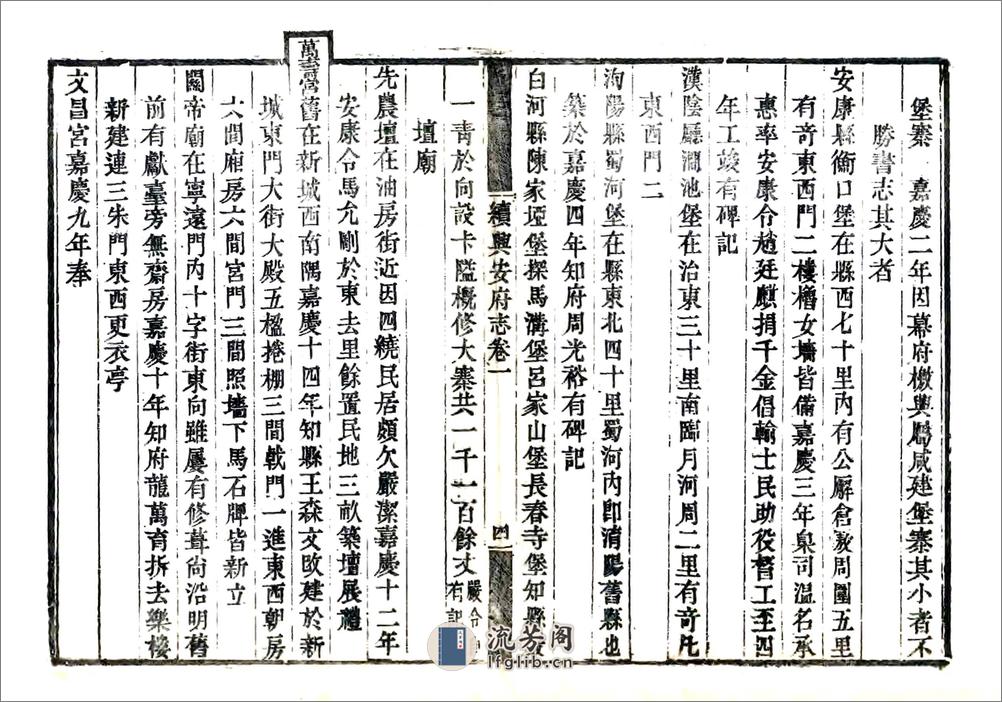 堡寨 嘉慶二年因幕府檄興鳳咸建堡寨其小者不
勝書志其大者
安康縣衡口堡在縣西七十里內有公廨倉廒周圍五里
有奇東西門二樓櫓女墻皆備嘉慶三年臬司溫名承
惠率安康令趙廷麒捐千金倡輸士民助役督工至四
年工竣有碑記
漢陰廳澗池堡在治東三十里南臨月河周二里有奇凡
東西門二
洵陽縣蜀河堡在縣東北四十里蜀河內即淯陽舊縣也
築於嘉慶四年知府周光裕有碑記
白河縣陳家埡堡探馬溝堡呂家山堡長春寺堡知縣嚴
一青於向設卡隘概修大寨共一千一百餘丈嚴令
有記
續興安府志卷一
四
壇廟
先農壇在油房街近因四繞民居頗欠嚴潔嘉慶十二年
安康令馬允剛於東去里餘置民地三畝築壇展禮
萬壽宮舊在新城西南隅嘉慶十四年知縣王森文改建於新
城東門大街大殿五楹捲棚三間戟門一進東西朝房
六間廂房六間宮門三間照墻下馬石牌皆新立
關帝廟在寧遠門內十字街東向雖屢有修葺尚沿明舊
前有獻臺旁無齋房嘉慶十年知府龍萬育拆去樂樓
新建連三朱門東西更衣亭
文昌宮嘉慶九年奉
流芳阁
lfglib.cn